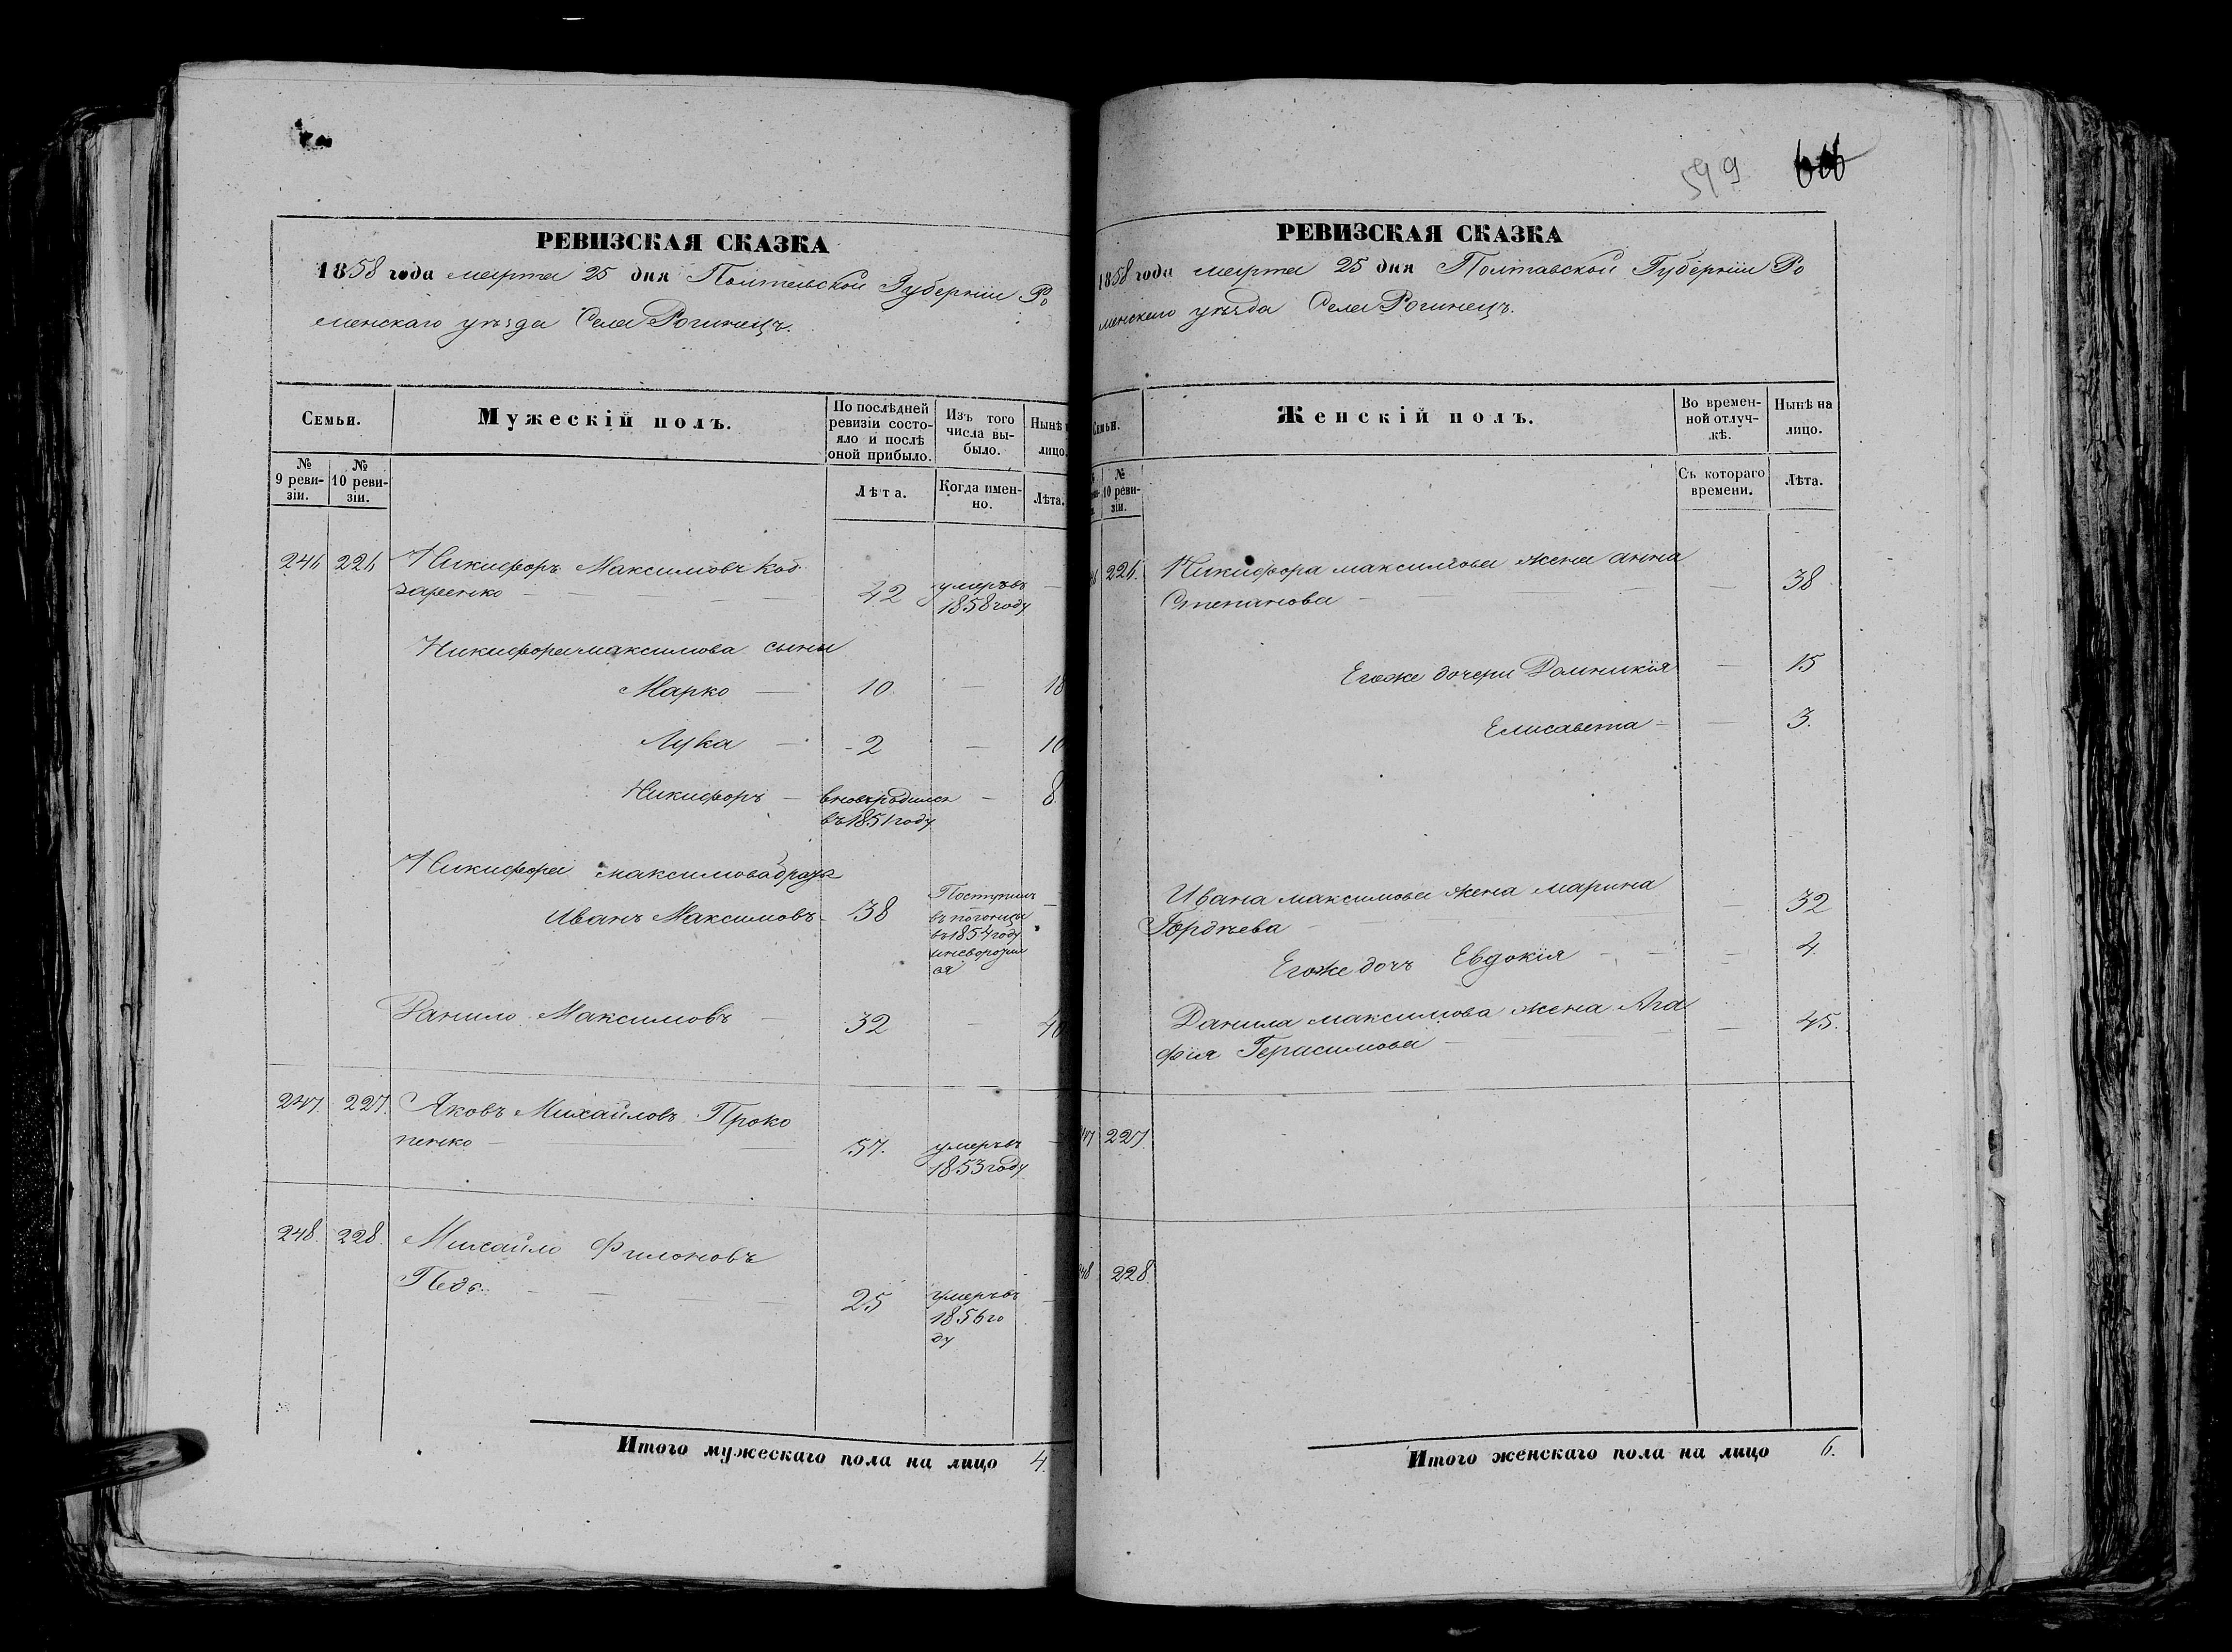 РЕВИЗСКАЯ СКАЗКА
1858 года марта 25 дня Полтавской Губернии Ро
менскаго уѣзда Села Рогинецъ.
Семьи.
Мужескій полъ.
По послѣдней ревизіи состояло и послѣ оной прибыло.
Изъ того числа выбыло.
Нынѣ
лицо.
№ 9 ревизіи.
№ 10 ревизіи.
Лѣта.
Когда именно.
Лѣта.
246 226 Никифоръ Максимовъ Коб
заренко 42 умеръ въ
1858 году
Никифора Максимова сыны
Марко 10 18
Лука 2 10
Никифоръ вновь родился 8
въ 1851 году
Никифора Максимова братъ
Иванъ Максимовъ 38 Поступилъ
въ погонцы
въ 1854 году
Данило Максимовъ 32 40
247 227. Яковъ Михайловъ Проко
пенко 57. умеръ въ
1853 году
248. 228. Михайло Филоновъ
25 умеръ въ
1856 го
ду
Итого мужескаго пола на лицо 4.
599
РЕВИЗСКАЯ СКАЗКА
1858 года марта 25 дня Полтавской Губернии Ро
менскаго уѣзда Села Рогинецъ.
Семьи.
Женскій полъ.
Во временной отлучкѣ.
Нынѣ на лицо.
№ 10 ревизіи.
Съ котораго времени.
Лѣта.
226. Никифора Максимова жена Анна
Степанова 38
Егоже дочери Домникія 15
Елисавета 3.
Ивана Максимова жена Марина 32
Гордѣева
Егоже дочь Евдокія 4
Данила Максимова жена Ага 45.
фия Герасимова
227
228.
Итого женскаго пола на лицо 6.